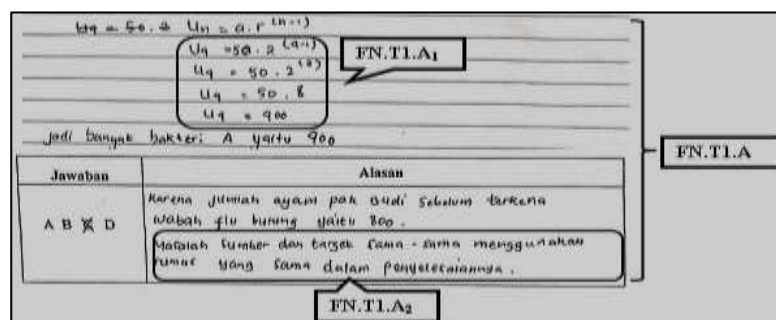 U4 = 50.2 Un = a.r^(n-1)
U4 = 50.2^(4-1)
FN.T1.A₁
U4 = 50.2^(3)
U4 = 50.8
U4 = 900
jadi banyak bakteri A yaitu 900
FN.T1.A
Jawaban
Alasan
A B X D
Karena jumlah ayam pak budi sebelum terkena
wabah flu burung yaitu 800.
Masalah sumber dan target sama-sama menggunakan
rumus yang sama dalam penyelesaiannya.
FN.T1.A₂